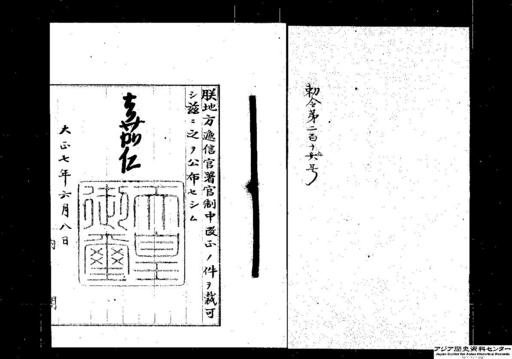 勅令第二百十六号
朕地方逓信官署官制中改正ノ件ヲ裁可
シ茲ニ之ヲ公布セシム
嘉仁
天皇御璽
大正七年六月八日
内閣
アジア歴史資料センター
Japan Center for Asian Historical Records